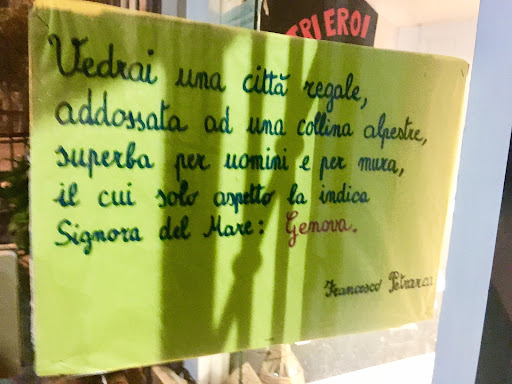 TRI EROI
Vedrai una città regale,
addossata ad una collina alpestre,
superba per uomini e per mura,
il cui solo aspetto la indica
Signora del Mare: Genova.
Francesco Petrarca